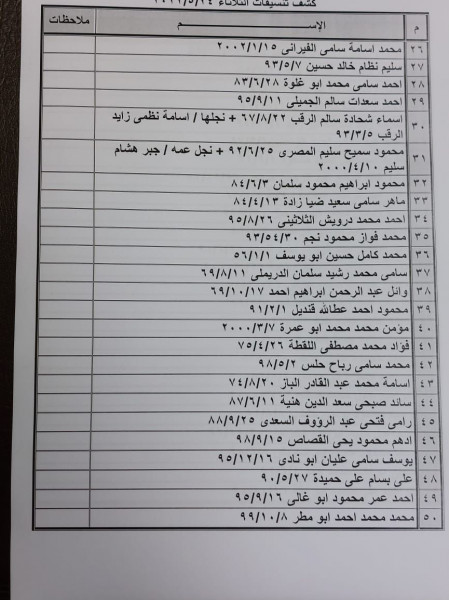 كشف تنسيقات الثلاثاء
م الإســـم ملاحظات
٢٦ محمد اسامة سامى الفيرانى ٢٠٠٢/١/١٥
٢٧ سليم نظام خالد حسين ٩٣/٥/٧
٢٨ احمد سامى محمد ابو غلوة ٨٣/٦/٢٨
٢٩ احمد سعدات سالم الجميلى ٩٥/٩/١١
٣٠ اسماء شحادة سالم الرقب ٦٧/٨/٢٢ + نجلها / اسامة نظمى زايد
الرقب ٩٣/٣/٥
٣١ محمود سميح سليم المصرى ٩٢/٦/٢٥ + نجل عمه / جبر هشام
سليم ٢٠٠٠/٤/١٠
٣٢ محمود ابراهيم محمود سلمان ٨٤/٦/٣
٣٣ ماهر سامى سعيد ضبا زادة ٨٤/٤/١٣
٣٤ احمد محمد درويش الثلاثينى ٩٥/٨/٢٦
٣٥ محمد فواز محمود نجم ٩٣/٥٤/٣٠
٣٦ محمد كامل حسين ابو يوسف ٥٦/١/١
٣٧ سامى محمد رشيد سلمان الدريملى ٦٩/٨/١١
٣٨ وائل عبد الرحمن ابراهيم احمد ٦٩/١٠/١٧
٣٩ محمود احمد عطالله قنديل ٩١/٢/١
٤٠ مؤمن محمد محمد ابو عمرة ٢٠٠٠/٣/٧
٤١ فؤاد محمد مصطفى اللقطة ٧٥/٤/٢٦
٤٢ محمد سامى رباح حلس ٩٨/٥/٢
٤٣ اسامة محمد عبد القادر الباز ٧٤/٨/٢٠
٤٤ سائد صبحى سعد الدين هنية ٨٧/٦/١١
٤٥ رامى فتحى عبد الرؤوف السعدى ٨٨/٩/٢٥
٤٦ ادهم محمود يحى القصاص ٩٨/٩/١٥
٤٧ يوسف سامى عليان ابو نادى ٩٥/١٢/١٦
٤٨ على بسام على حميدة ٩٠/٥/٢٧
٤٩ احمد عمر محمود ابو غالى ٩٥/٩/١٦
٥٠ محمد محمد احمد ابو مطر ٩٩/١٠/٨